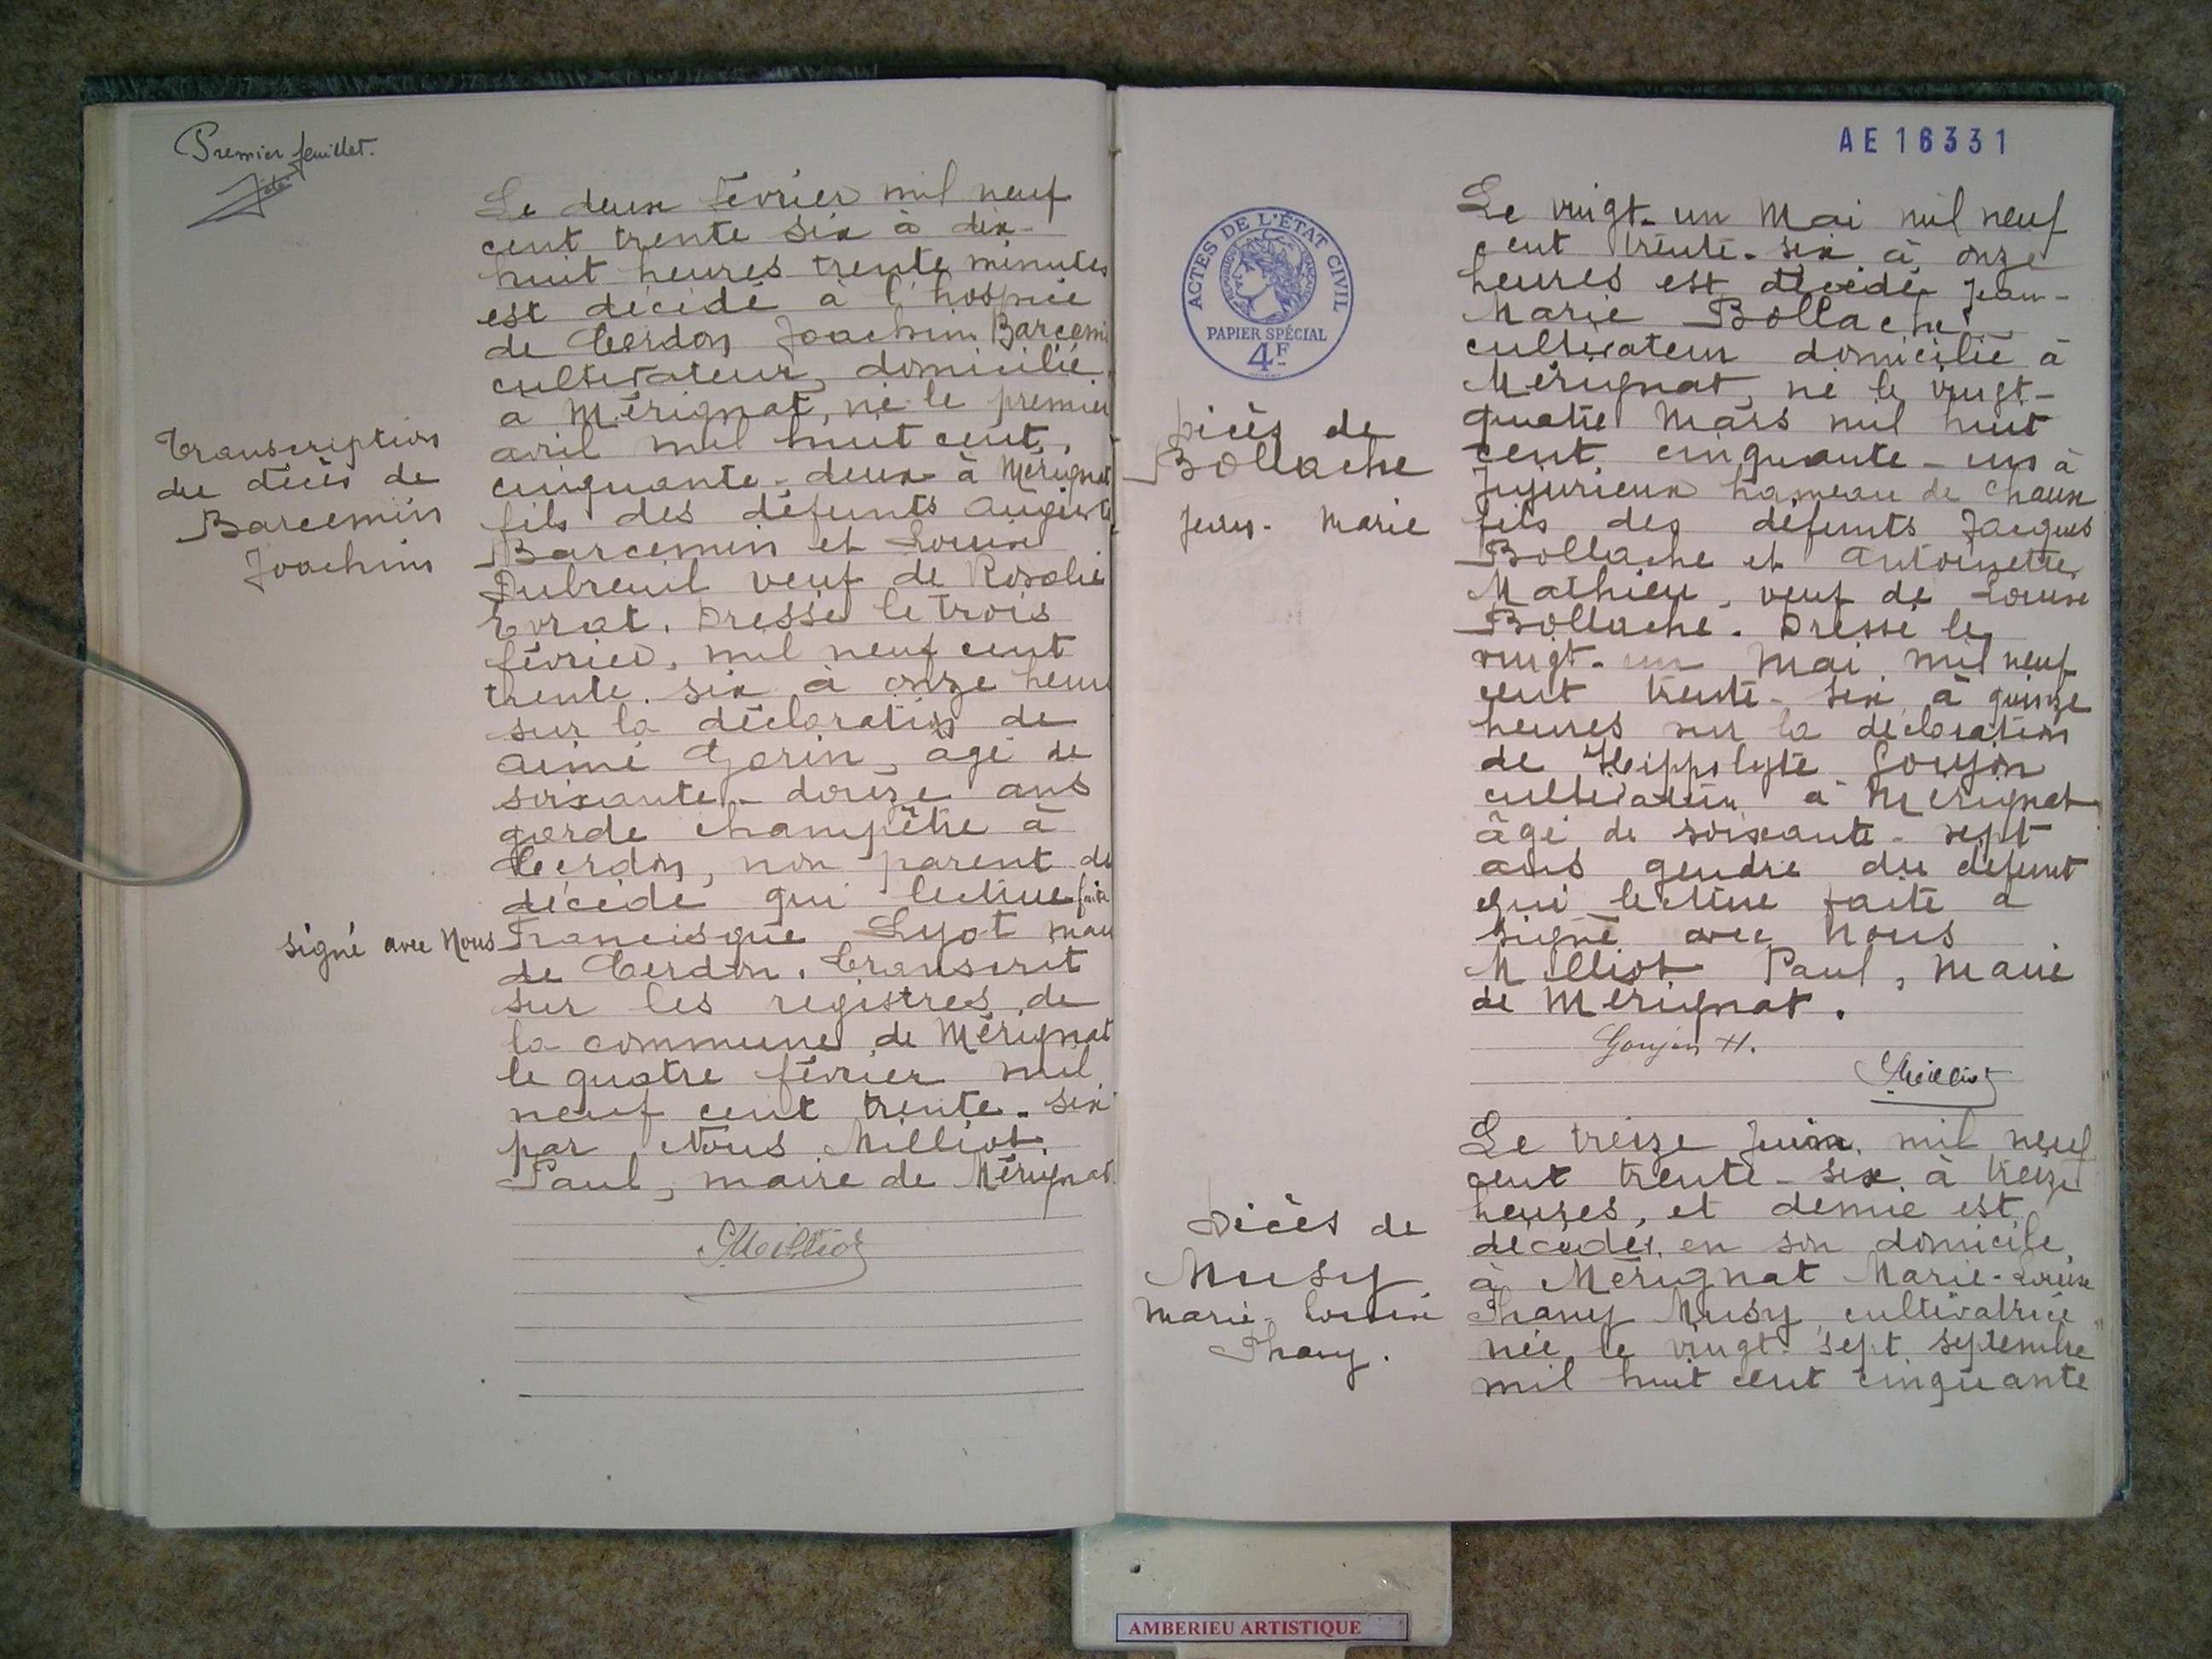 Premier feuillet.
Transcription
du décès de
Barcemin
Joachim
Le deux février mil neuf
cent trente six à dix-
huit heures trente minutes
est décédé à l'hospice
de Cerdon Joachim Barcemi
cultivateur, domicilié
à Mérignat, né le premier
avril mil huit cent
cinquante-deux à Mérignat
fils des défunts Auguste
Barcemin et Louise
Dubreuil veuf de Rosalie
Evrat. Dressé le trois
février, mil neuf cent
trente-six à onze heur
sur la déclaration de
Aimé Gorin, âgé de
soixante-douze ans
garde champêtre à
Cerdon, non parent du
décédé qui lecture faite
signé avec Nous Francisque Lyot mai
de Cerdon. Transcrit
sur les registres de
la commune de Mérignat
le quatre février mil
neuf cent trente-six
par Nous Milliot
Paul, maire de Mérignat
Milliot
AE 16331
ACTES DE L'ÉTAT CIVIL
RÉPUBLIQUE FRANÇAISE
PAPIER SPÉCIAL
4F
Décès de
Bollache
Jean-Marie
Le vingt-un Mai mil neuf
cent trente-six à onze
heures est décédé Jean-
Marie Bollache
cultivateur domicilié à
Mérignat, né le vingt-
quatre Mars mil huit
cent cinquante-un à
Jujurieux hameau de Chaux
fils des défunts Jacques
Bollache et Antoinette
Mathieu, veuf de Louise
Bollache. Dressé le
vingt-un Mai mil neuf
cent trente-six à quinze
heures sur la déclaration
de Hippolyte Goujon
cultivateur à Mérignat
âgé de soixante-sept
ans gendre du défunt
qui lecture faite a
signé avec Nous
Milliot Paul, Maire
de Mérignat.
Goujon H.
Milliot
Décès de
Musy
Marie-Louise
Phany.
Le treize Juin mil neuf
cent trente-six à treize
heures, et demie est
décédée, en son domicile,
à Mérignat Marie-Louise
Phany Musy, cultivatrice
née le vingt-sept septembre
mil huit cent cinquante
AMBERIEU ARTISTIQUE